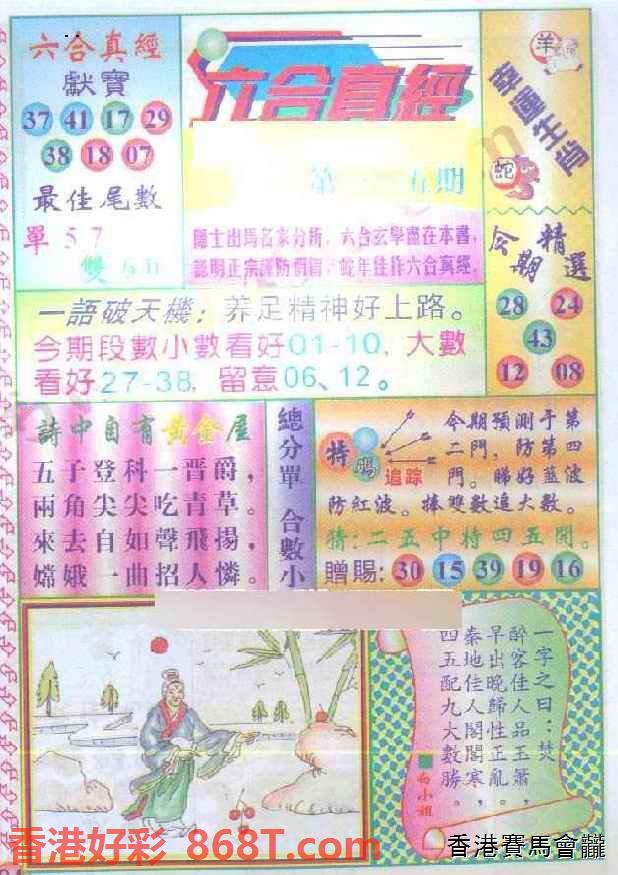 六合真經
獻寶
37 41 17 29
38 18 07
最佳尾數
單 5 7
雙
六合真經
五期
隱士出馬名家分析，六合玄學盡在本書，
蛇年佳作六合真經.
羊
幸運生肖
蛇
今期精選
28 24
43
12 08
一語破天機：养足精神好上路。
今期段數小數看好01-10，大數
看好27-38，留意06、12。
詩中自有黃金屋
五子登科一晋爵，
兩角尖尖吃青草。
來去自如聲飛揚，
嫦娥一曲招人憐。
總分單 合數小
特碼
追踪
今期預測于第
二門，防第四
門。睇好藍波
防紅波。捧雙數追大數。
猜:二五中特四五開。
贈賜: 30 15 39 19 16
一字之曰：焚
醉客佳人品玉簫，
早出晚歸性正亂。
秦地佳人閣閣寒，
四五配九大數勝。
白小姐
香港好彩 868T.com
香港賽馬會